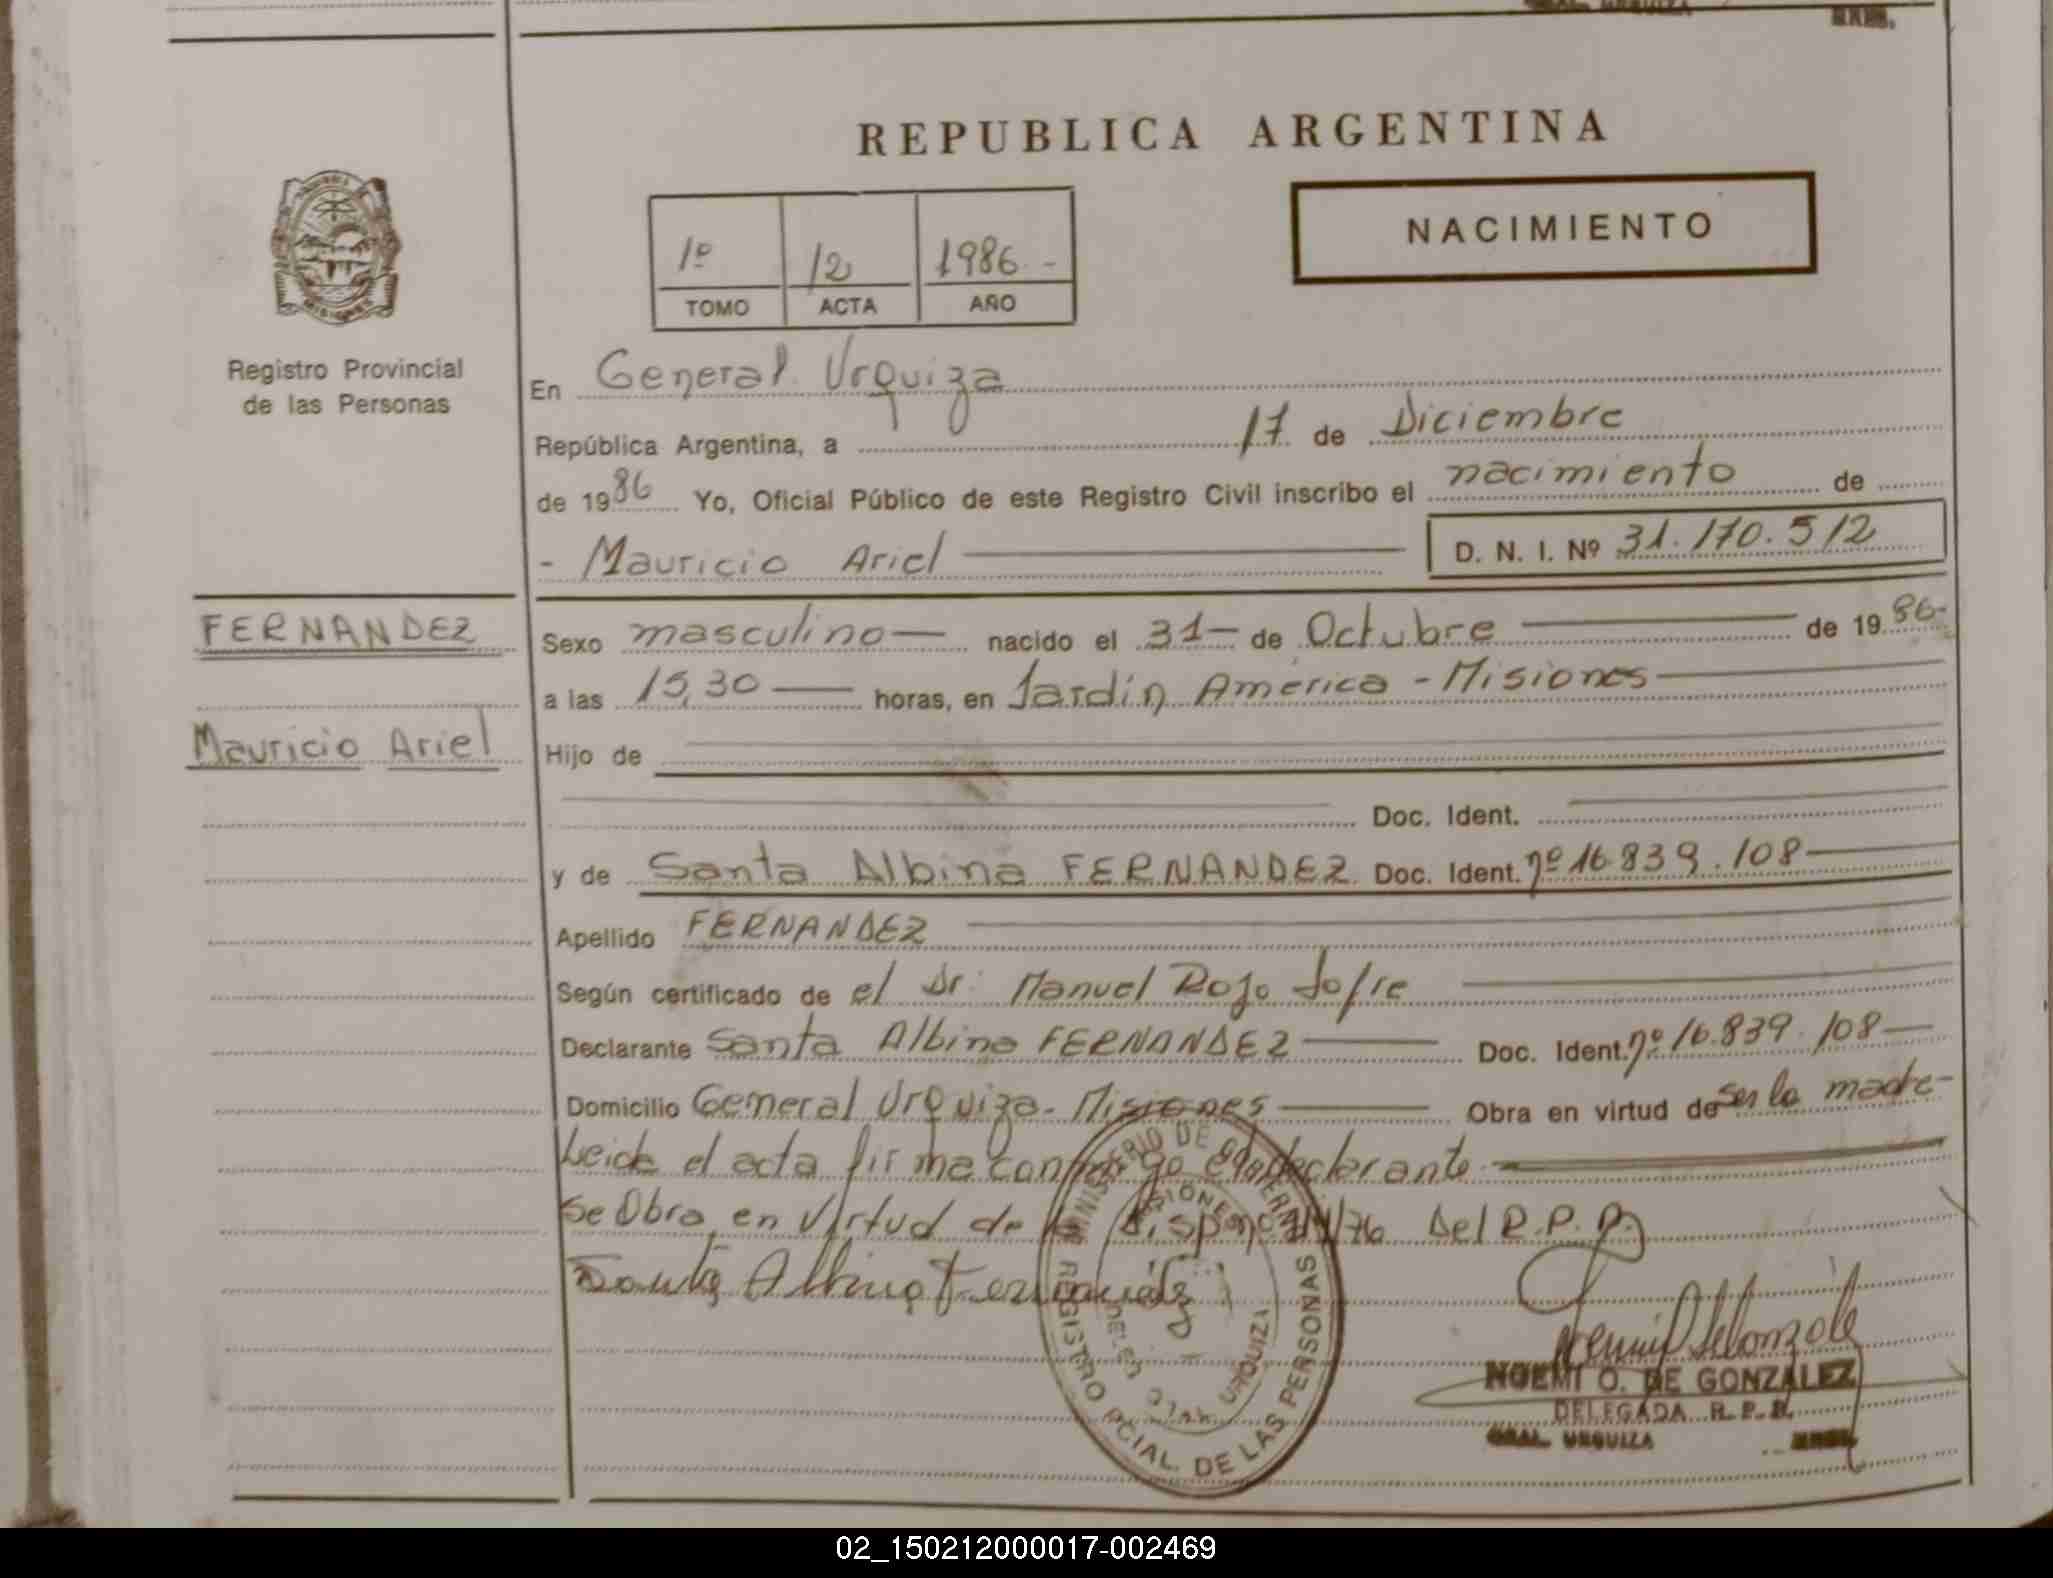 REPUBLICA ARGENTINA
NACIMIENTO
1º 12 1986 -
TOMO ACTA AÑO
Registro Provincial
de las Personas
En General Urquiza
República Argentina, a 17 de Diciembre
de 1986 Yo, Oficial Público de este Registro Civil inscribo el nacimiento de
- Mauricio Ariel D. N. I. Nº 31.170.512
FERNANDEZ
Mauricio Ariel
Sexo masculino nacido el 31 de Octubre de 1986-
a las 15,30 horas, en Jardín América - Misiones
Hijo de
Doc. Ident.
y de Santa Albina FERNANDEZ Doc. Ident. nº 16.839.108
Apellido FERNANDEZ
Según certificado de el Dr. Manuel Rojo
Declarante Santa Albina FERNANDEZ Doc. Ident. nº 16.839.108
Domicilio General Urquiza - Misiones Obra en virtud de ser la madre-
Leida el acta firma conmigo declarante
Se Obra en Virtud de la Disp nº /76 Del R.P.P.
Santa Albina Fernández
MINISTERIO DE GOBIERNO
MISIONES
REGISTRO PCIAL. DE LAS PERSONAS
DELEG. GRAL. URQUIZA
NOEMI O. DE GONZALEZ
DELEGADA R. P. P.
GRAL. URQUIZA MNES.
02_150212000017-002469